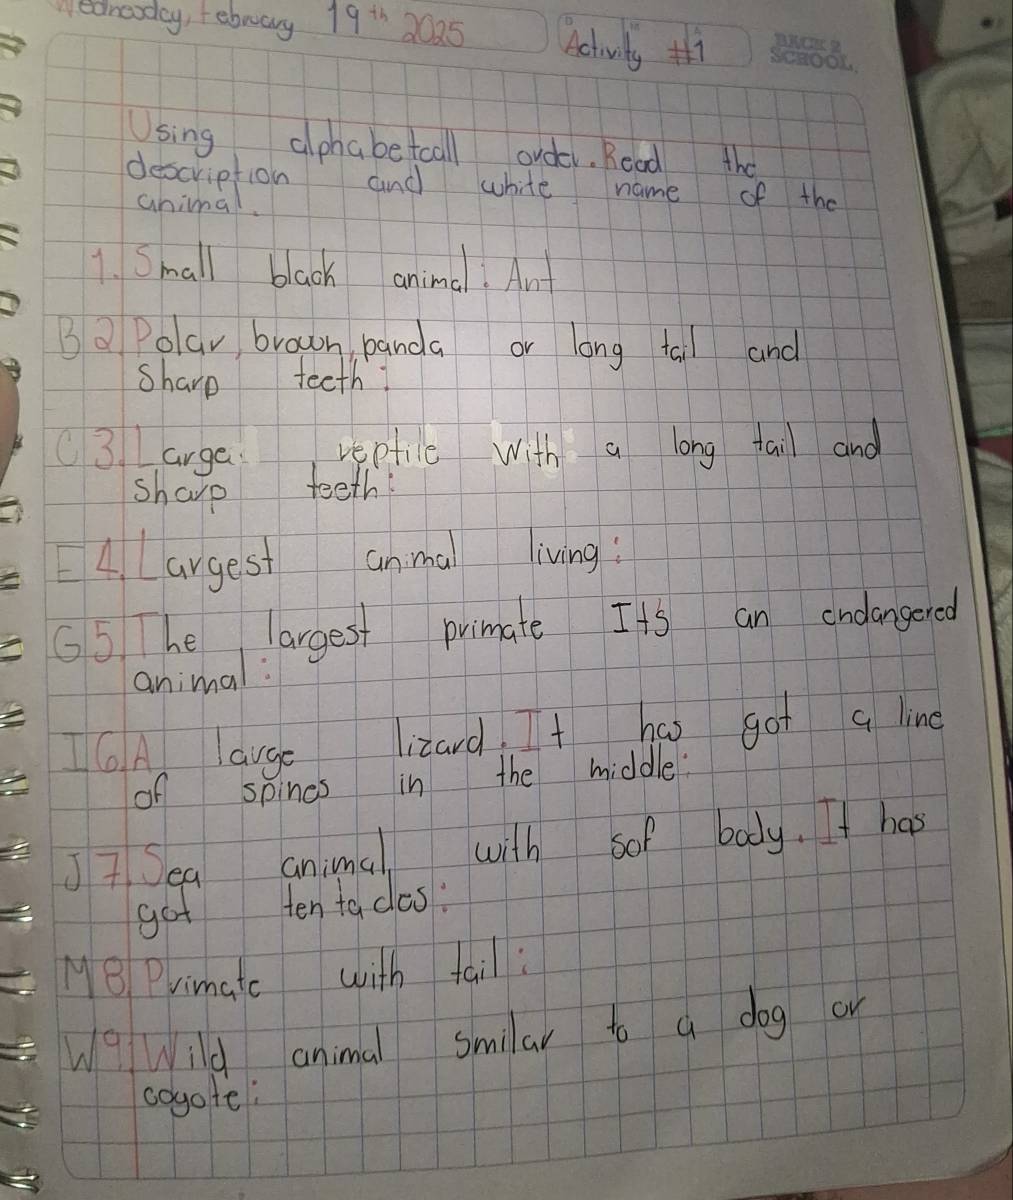 Wednesday, February 19th 2025
Activity #1
BACK 2
SCHOOL
Using alphabetcall order. Read the
description and white name of the
animal.
1. Small black animal: Ant
B 2. Polar, brown, panda or long tail and
Sharp teeth:
C 3. Large reptile with a long tail and
sharp teeth:
E 4. Largest animal living:
G 5. The largest primate It's an endangered
animal:
I 6. A large lizard. It has got a line
of spines in the middle:
J 7. Sea animal with sof body. It has
got tentacles:
M 8. Primate with tail:
W 9. Wild animal smilar to a dog or
coyote: